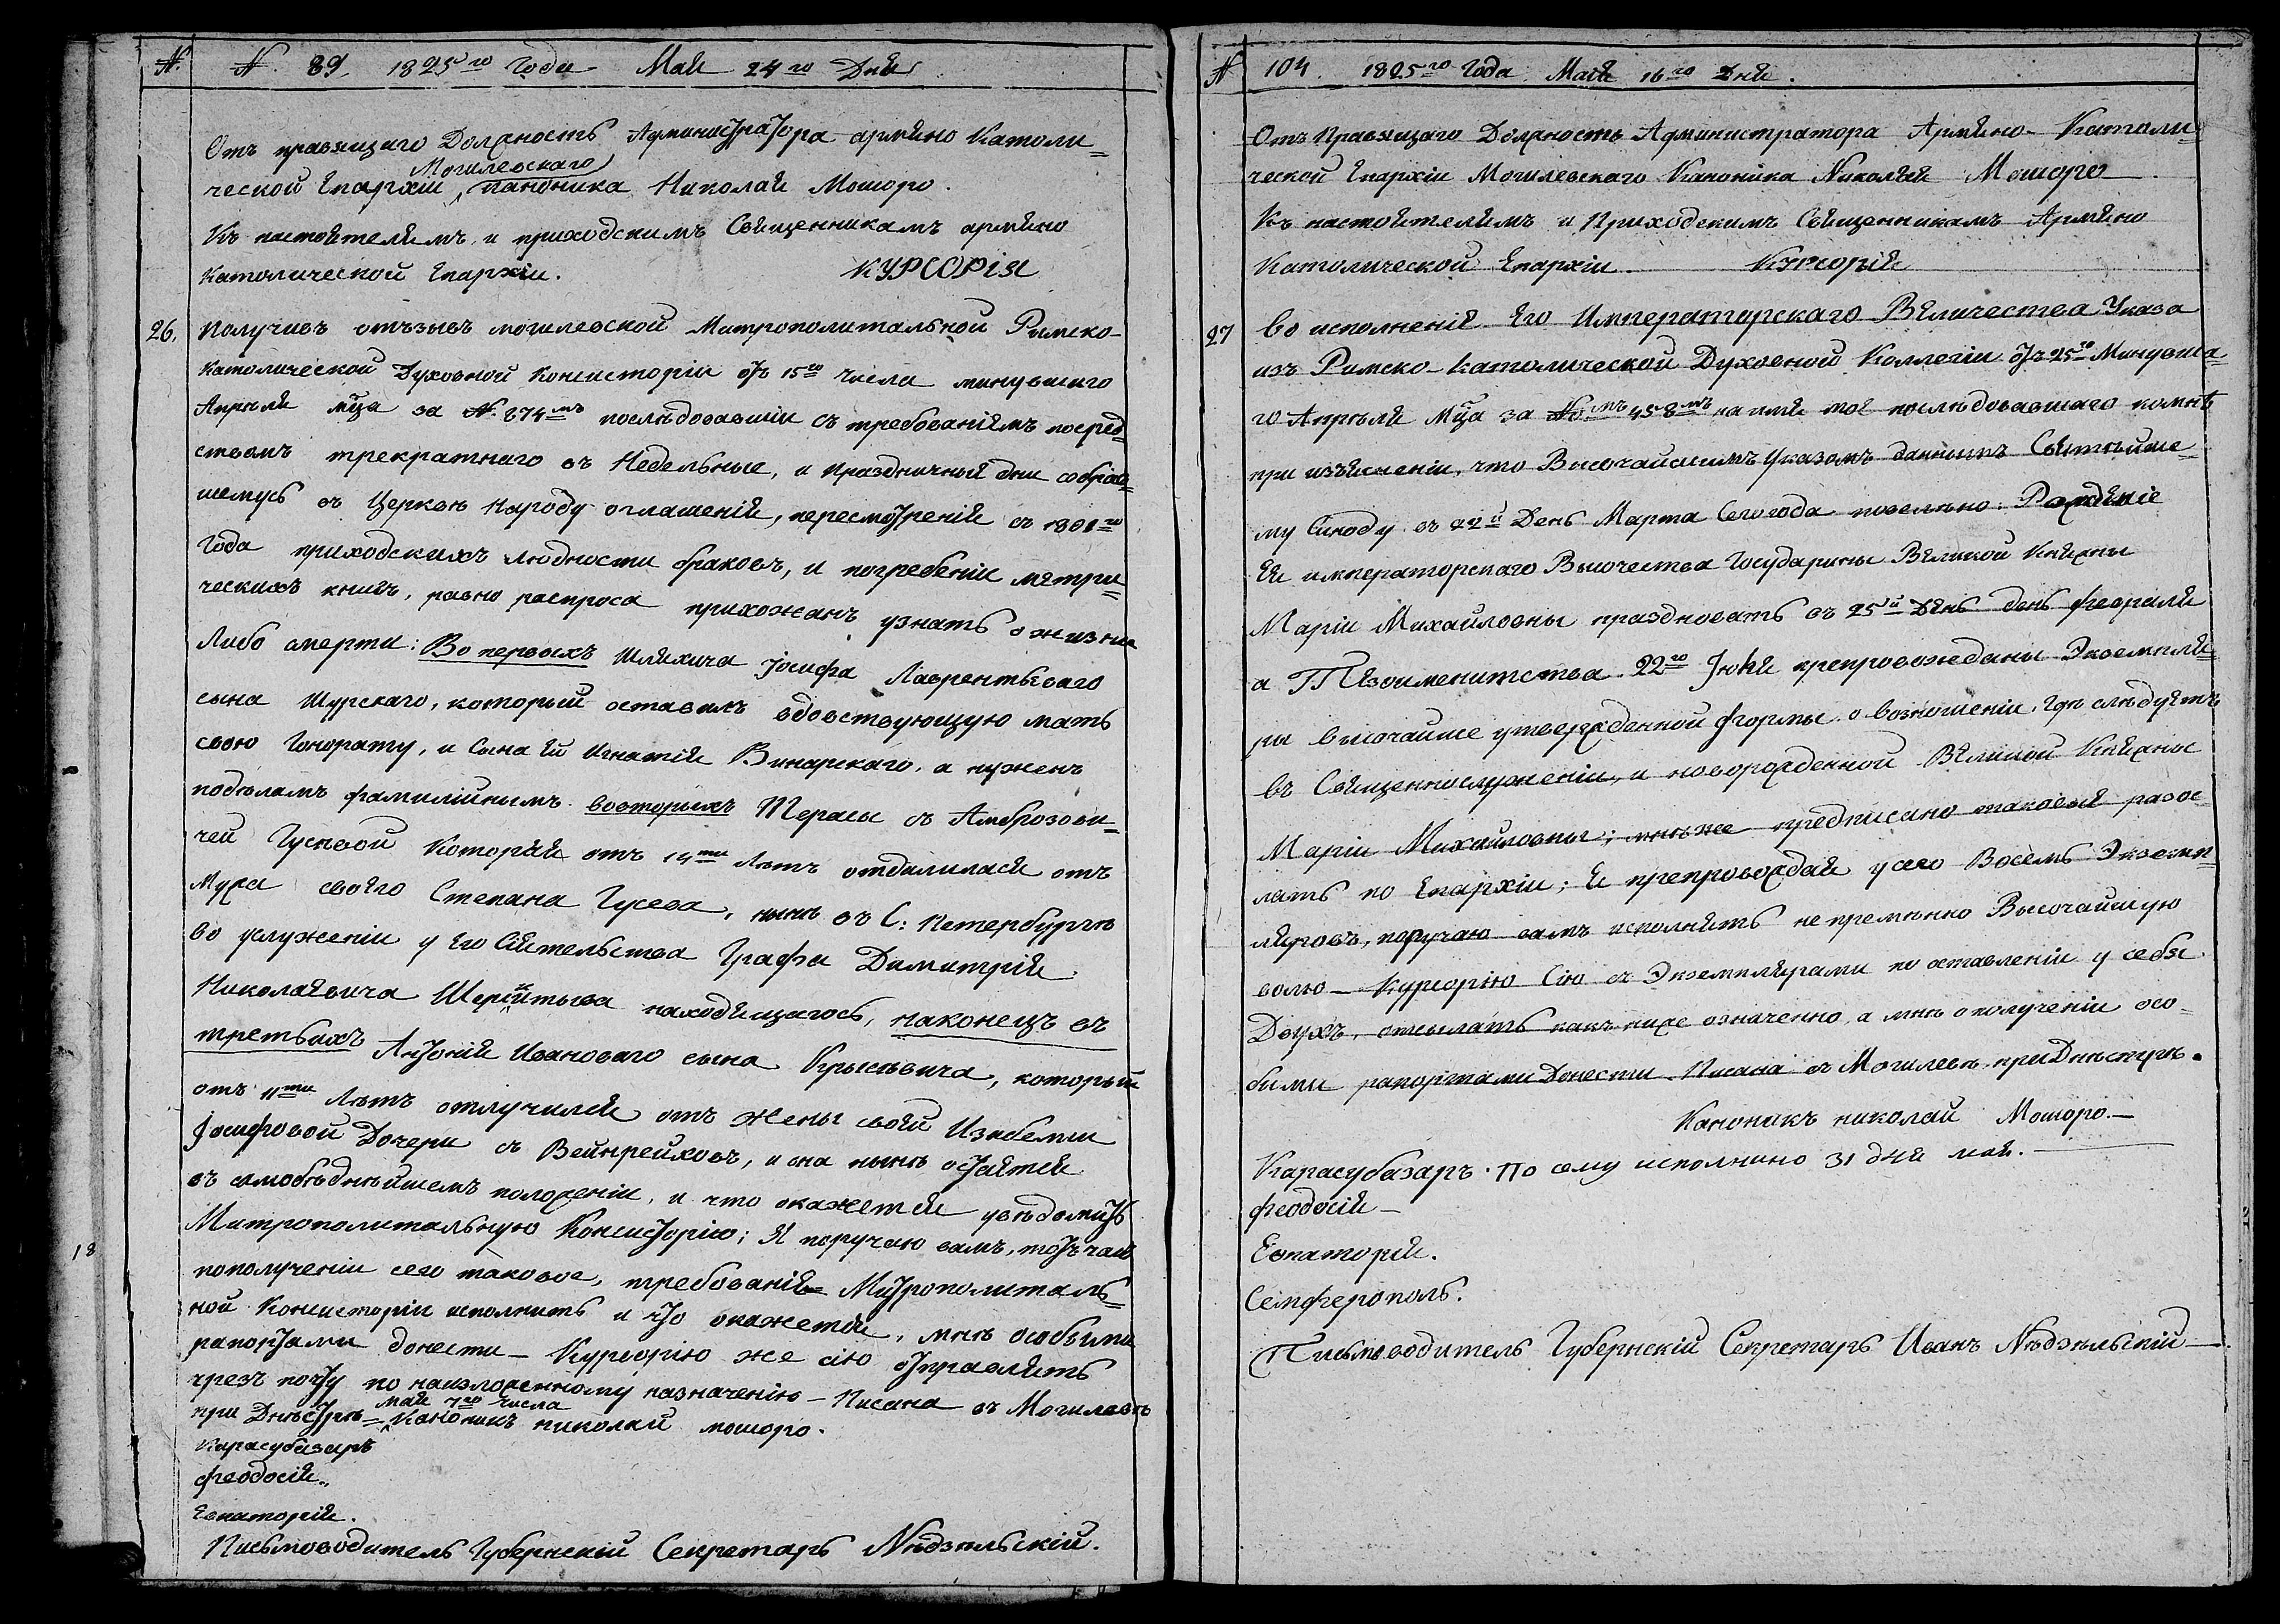 №. № 89. 1825го Года Мая 24го Дня
Отъ правящаго Должность Администратора армяно Католи=
Могилевскаго
ческой Епархіи, каноника Николая Мошоро.
Къ настоятелямъ, и приходскимъ Священникамъ армяно
Католической Епархіи. КУРСОРІЯ
26. Получивъ отъзывъ могилевской Митрополитальной Римско-
Католической Духовной Консисторіи отъ 15го числа минувшаго
Апреля мца за №. 874мъ послѣдовавшіи съ требованіемъ посред=
ствомъ трекратнаго въ Недельные, и праздничныя дни собрав=
шемусь въ Церковь Народу оглашенія, пересмотренія съ 1801го
Года приходскихъ людности браковъ, и погребеніи метри=
ческихъ книгъ, равно распроса прихожанъ узнать о жизни
Либо смерти: Во первыхъ Шляхича Іосифа Лаврентьеваго
сына Шурскаго, который оставилъ вдовствующую мать
свою Гонорату, и Сына Ей Игнатія Винарскаго, а нуженъ
подѣламъ фамилійнымъ. вовторыхъ Терасы съ Амброзови-
чей Гусивой Которая отъ 14ти Лѣтъ отдалилася отъ
Мужа своего Степана Гусева, нынѣ въ С: Петербургѣ
во услуженіи у Его Сіятельства Графа Димитрія
Николаевича Шереитьева находящагось, наконецъ въ
третьихъ Антонія Ивановаго сына Крысевича, который
отъ 11ти Лѣтъ отлучился отъ Жены своей Изабелли
Іосифовой Дочери съ Вейнрейховъ, и она нынѣ остается
въ самобѣднѣйшемъ положеніи, и что окажется увѣдомить
Митрополитальную Консисторію; Я поручаю вамъ, тотъ часъ
пополученіи сего таковое, требованія Митрополиталь=
ной Консисторіи исполнить и что окажется, мнѣ особыми
рапортами донести — Курсорію же сію отправлять
чрезъ почту по нанизложенному назначенію — Писана въ Могилевѣ
мая 7го числа
при Днѣстрѣ = Каноникъ николай мошоро.
Карасубазаръ
Феодосія.
Евпаторія.
Письмоводитель Губернскій Секретарь Нѣдзельскій.
18
№ 104. 1825го Года Мая 16го Дня.
Отъ Правящаго Должность Администратора Армяно-Католи=
ческой Епархіи Могилевскаго Каноника Николая Мошоро
Къ настоятелямъ и Приходскимъ Священникамъ Армяно
Католической Епархіи Курсорія
27 Во исполненіе Его Императорскаго Величества Указа
изъ Римско-Католической Духовной Коллегіи отъ 25го Минувша-
го Апрѣля Мца за №мъ 458мъ на имя мое послѣдовавшаго комнѣ
при изъясненіи, что Высочайшимъ Указомъ даннымъ Святѣйше-
му Синоду въ 22й День Марта Сего года повелѣно: Рожденіе
Ея императорскаго Высочества Государины Великой Княжны
Маріи Михайловны праздновать въ 25й День день Февраля
а Тезоименитства 22го Іюля препровождены Экземпля=
ры высочайше утвержденной формы о возношеніи, гдѣ слѣдуетъ
въ Священнослуженіи, и новорожденной Великой Княжны
Маріи Михайловны; мнѣ же предписано таковыя разос-
лать по Епархіи; Я препровождая у сего Восемь Экземп-
ляровъ, поручаю вамъ исполнять непремѣнно Высочайшую
волю — Курсорію Сію съ Экземплярами по оставленіи у себя
Двухъ, отсылать какъ ниже означенно, а мнѣ о полученіи осо-
быми рапортами Донести. Писана въ Могилевѣ приДнѣстрѣ.
Каноникъ николай Мошоро.—
Карасубазаръ. По сему исполнино 31 дня мая.
Феодосія —
Евпаторія.
Семферополь.
Письмоводитель Губернскій Секретарь Иванъ Нѣдзельскій —